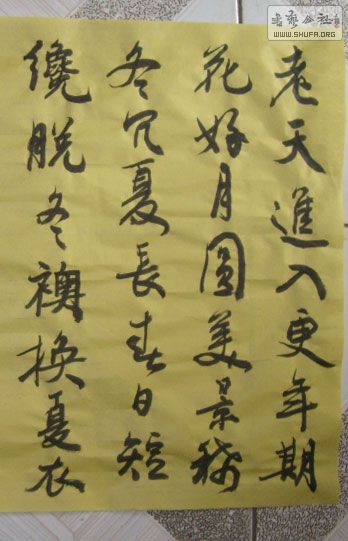 老天進入更年期
花好月圓美景稀
冬冗夏長春日短
纔脫冬襖換夏衣
書藝公社
WWW.SHUFA.ORG